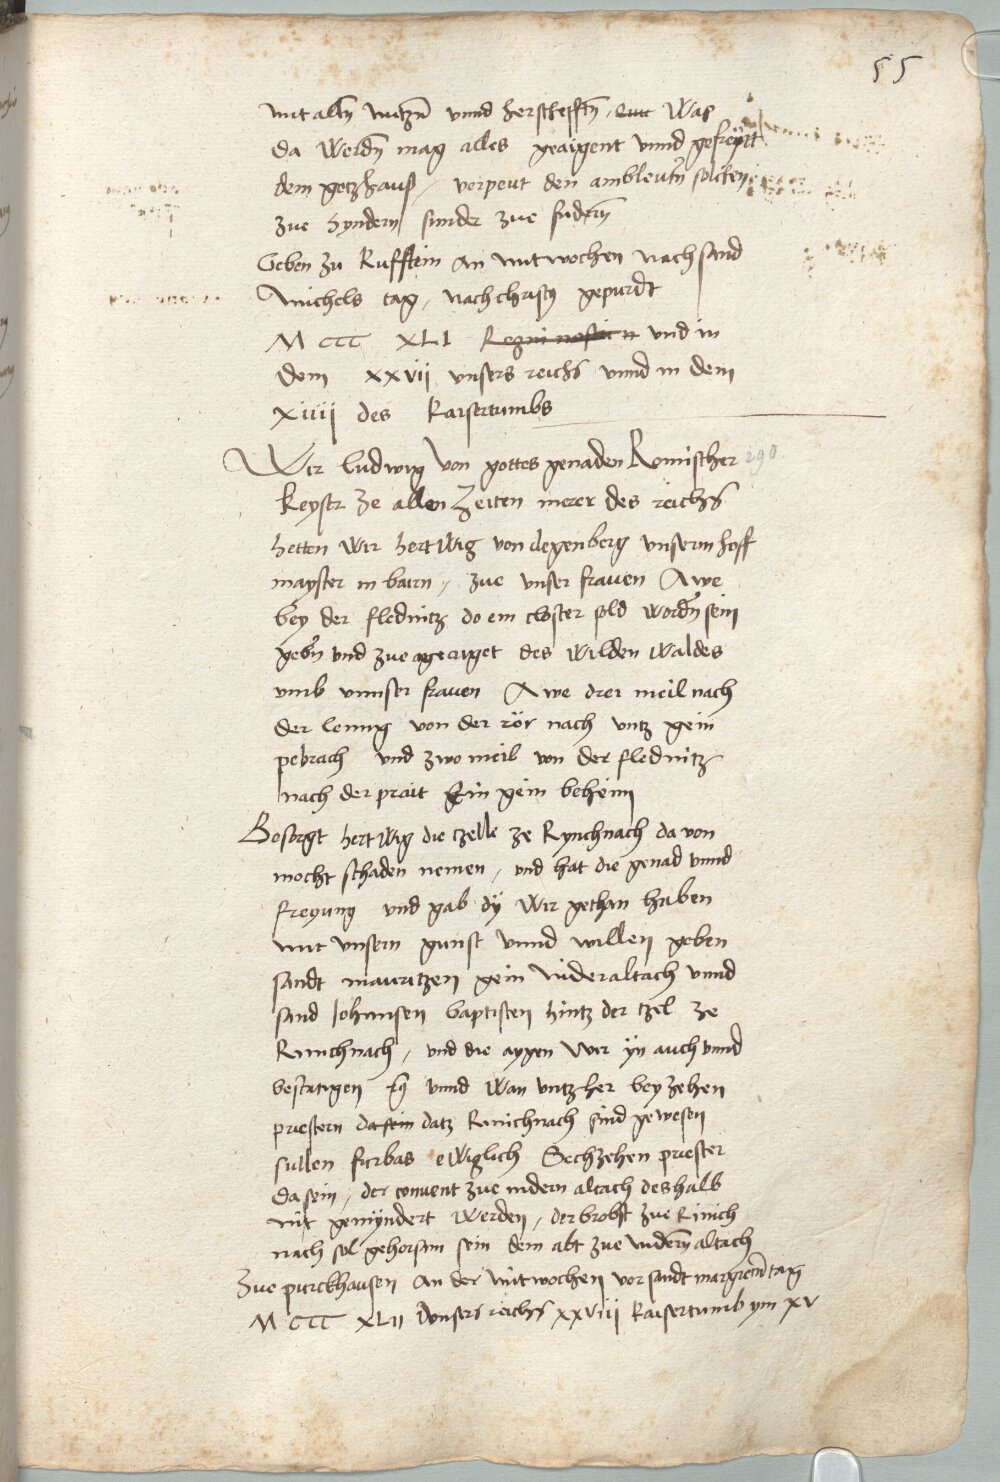 55
mit alln nutzn unnd herscheffen, Was
da werdn mag alles geaigent unnd gefreytt
dem gotzhauß, verpeut den ambleutn solichen
zue hyndern sunder zue fudern
Geben zu Kuffstein an mitwochen nach sand
michels tag, nach christy gepurdt
M CCC XLI und in
dem xxvij unsers reichs unnd in dem
xiiij des kaisertumbs
Wir ludwig von gottes genaden Romischer 290
keyser ze allen zeiten merer des reichs
hetten wir hertwig von degenberg unserm hoff
mayster in bairn, zue unser frauen Awe
bey der flednitz do ein closter sold wordn sein
gebn und zue geaiget des wilden waldes
umb unnser frauen Awe drei meil nach
der leung von der rör nach untz gein
pebrach und zwo meil von der flednitz
nach der prait hin gein beheim
Besorgt hertwig die tzelle ze Rynchnach da von
mocht schaden nemen, und hat die genad unnd
freyung und gab dy wir gethan haben
mit unsern gunst unnd willen geben
sandt mauritzen gein nideraltach unnd
sand Johansen baptisten hintz der tzel ze
Rinichnach, und die aygen wir yn auch unnd
bestatigen unnd wan untzher bey zehen
priestern datz Rinichnach sind gewesen
sullen furbas ewiglich Sechzehen priester
da sein, der convent zue nidern altach deshalb
nit gemyndert werden, der brobst zue Rinich
nach sol gehorsam sein dem abt zue nidern altach
Zue purckhausen an der mitwochen vor sandt margreten tag
M CCC XLII unsers reichs xxviij kaisertumb ym xv